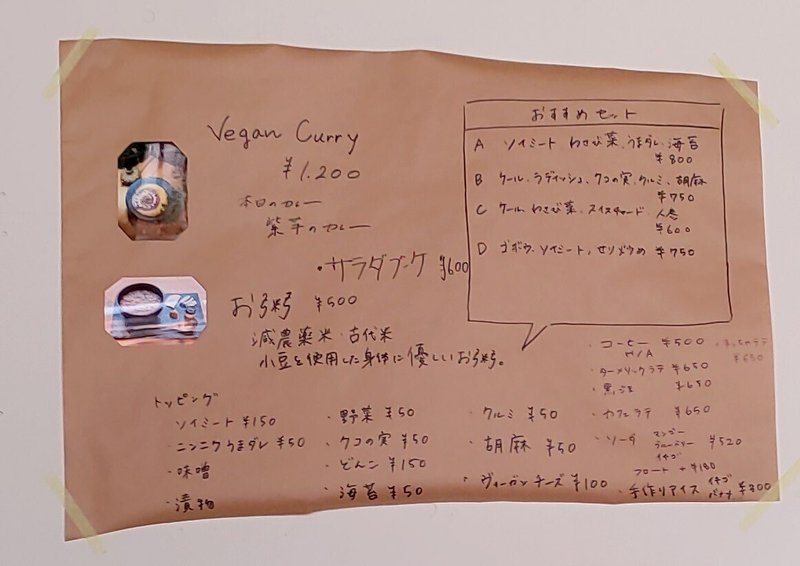 Vegan Curry
¥1,200
本日のカレー
紫芋のカレー
・サラダブーケ ¥600
お粥 ¥500
減農薬米・古代米
小豆を使用した身体に優しいお粥。
おすすめセット
A ソイミート わさび菜、うまダレ、海苔
¥800
B ケール、ラディッシュ、クコの実、クルミ、胡麻
¥750
C ケール、わさび菜、スイスチャード 人参
¥600
D ゴボウ、ソイミート、 ¥750
トッピング
ソイミート ¥150
・ニンニクうまダレ ¥50
・味噌
・漬物
・野菜 ¥50
・クコの実 ¥50
・どんこ ¥150
・海苔 ¥50
・クルミ ¥50
・胡麻 ¥50
・ヴィーガンチーズ ¥100
・コーヒー ¥500
H/A
・まっちゃラテ
¥650
・ターメリックラテ ¥650
・黒 ¥650
・カフェラテ ¥650
・ソーダ マンゴー
ブルーベリー ¥520
イチゴ
フロート +¥180
・手作りアイス イチゴ
バナナ ¥300